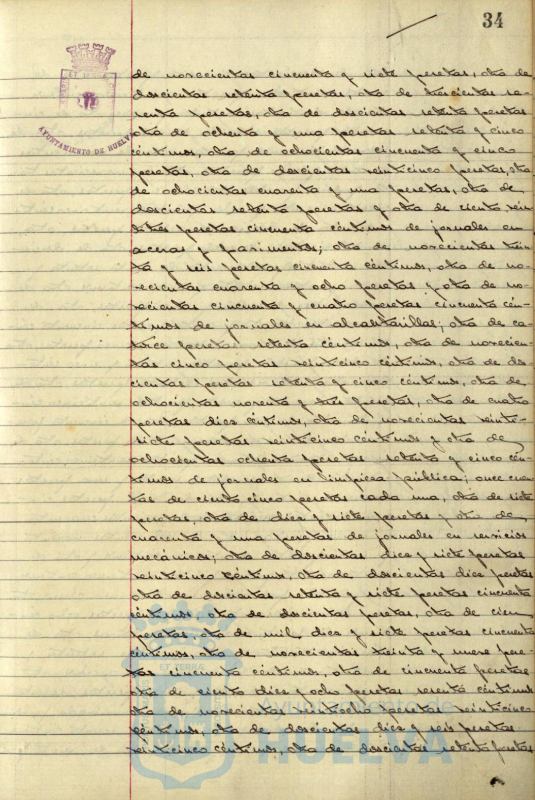 34
AYUNTAMIENTO DE HUELVA
de novecientas cincuenta y siete pesetas, otra de
doscientas setenta pesetas, otra de trescientas se-
senta pesetas, otra de doscientas setenta pesetas
otra de ochenta y una pesetas setenta y cinco
céntimos, otra de ochocientas cincuenta y cinco
pesetas, otra de doscientas veinticinco pesetas, otra
de ochocientas cuarenta y una pesetas, otra de
doscientas setenta pesetas y otra de ciento vein-
titrés pesetas cincuenta céntimos de jornales en
aceras y pavimentos; otra de novecientas trein-
ta y seis pesetas cincuenta céntimos, otra de no-
vecientas cuarenta y ocho pesetas y otra de no-
vecientas cincuenta y cuatro pesetas cincuenta cén-
timos de jornales en alcantarillas; otra de ca-
torce pesetas setenta céntimos, otra de novecien-
tas cinco pesetas veinticinco céntimos, otra de dos-
cientas pesetas setenta y cinco céntimos, otra de
ochocientas noventa y tres pesetas, otra de cuatro
pesetas diez céntimos, otra de novecientas veinti-
siete pesetas veinticinco céntimos y otra de
ochocientas ochenta pesetas setenta y cinco cén-
timos de jornales en limpieza pública; once cuen-
tas de ciento cinco pesetas cada una, otra de siete
pesetas, otra de diez y siete pesetas y otra de
cuarenta y una pesetas de jornales en servicios
mecánicos; otra de doscientas diez y siete pesetas
veinticinco céntimos, otra de doscientas diez pesetas
otra de doscientas setenta y siete pesetas cincuenta
céntimos, otra de doscientas pesetas, otra de cien
pesetas, otra de mil diez y siete pesetas cincuenta
céntimos, otra de novecientas treinta y nueve pese-
tas cincuenta céntimos, otra de cincuenta pesetas
otra de ciento diez y ocho pesetas sesenta céntimos
otra de novecientas veintiocho pesetas veinticinco
céntimos, otra de doscientas diez y seis pesetas
veinticinco céntimos, otra de doscientas setenta pesetas
HUELVA